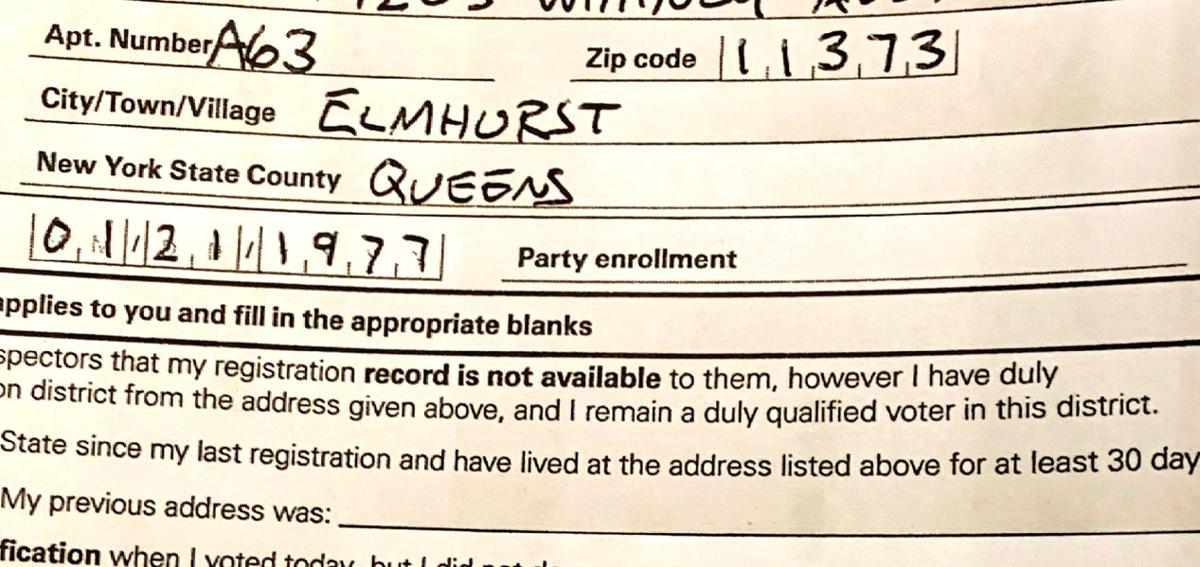 Apt. Number A63 Zip code 11373
City/Town/Village ELMHURST
New York State County QUEENS
01/21/1977 Party enrollment
applies to you and fill in the appropriate blanks
spectors that my registration record is not available to them, however I have duly
on district from the address given above, and I remain a duly qualified voter in this district.
State since my last registration and have lived at the address listed above for at least 30 day
My previous address was:
fication when I voted today, but I did not